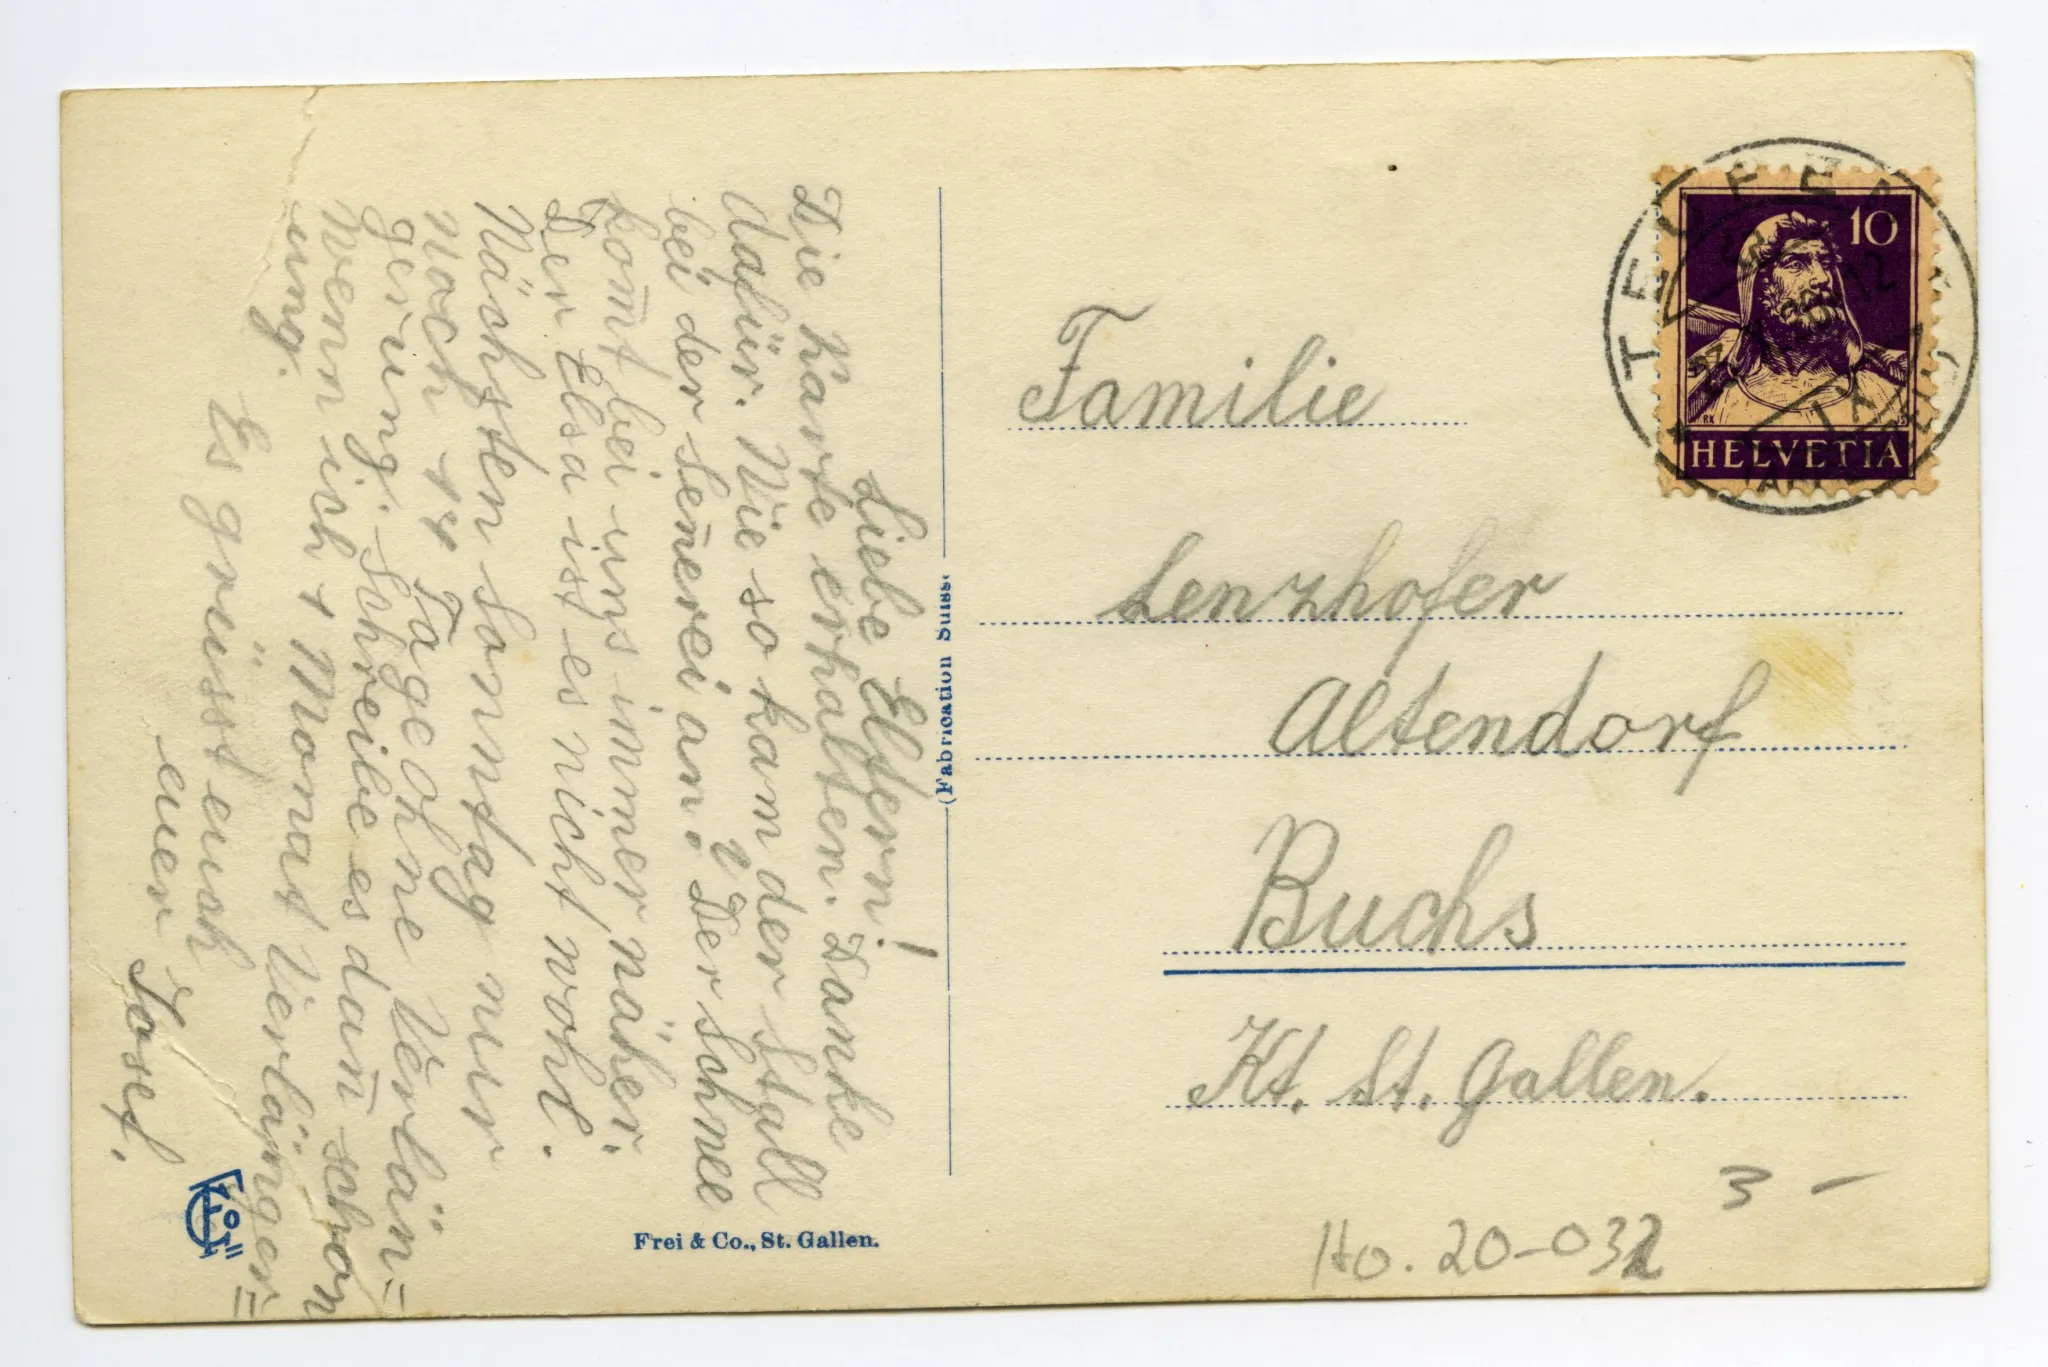 Liebe Eltern!
Die Karte erhalten. Danke
dafür. Wie so kam der Stall
bei der Sen̄erei an? Der Schnee
kom̄t bei uns immer näher.
Der Elsa ist es nicht wohl.
Nächsten Sonntag nur
noch 14 Tage ohne Verlän=
gerung. Schreibe es dan̄ schon
wenn ich 1 Monat Verlänger=
ung.
Es grüsst euch
euer Josef.
(Fabrication Suisse
Frei & Co., St. Gallen.
10
HELVETIA
Familie
Lenzhofer
Altendorf
Buchs
Kt. St. Gallen.
3 -
Ho. 20-032